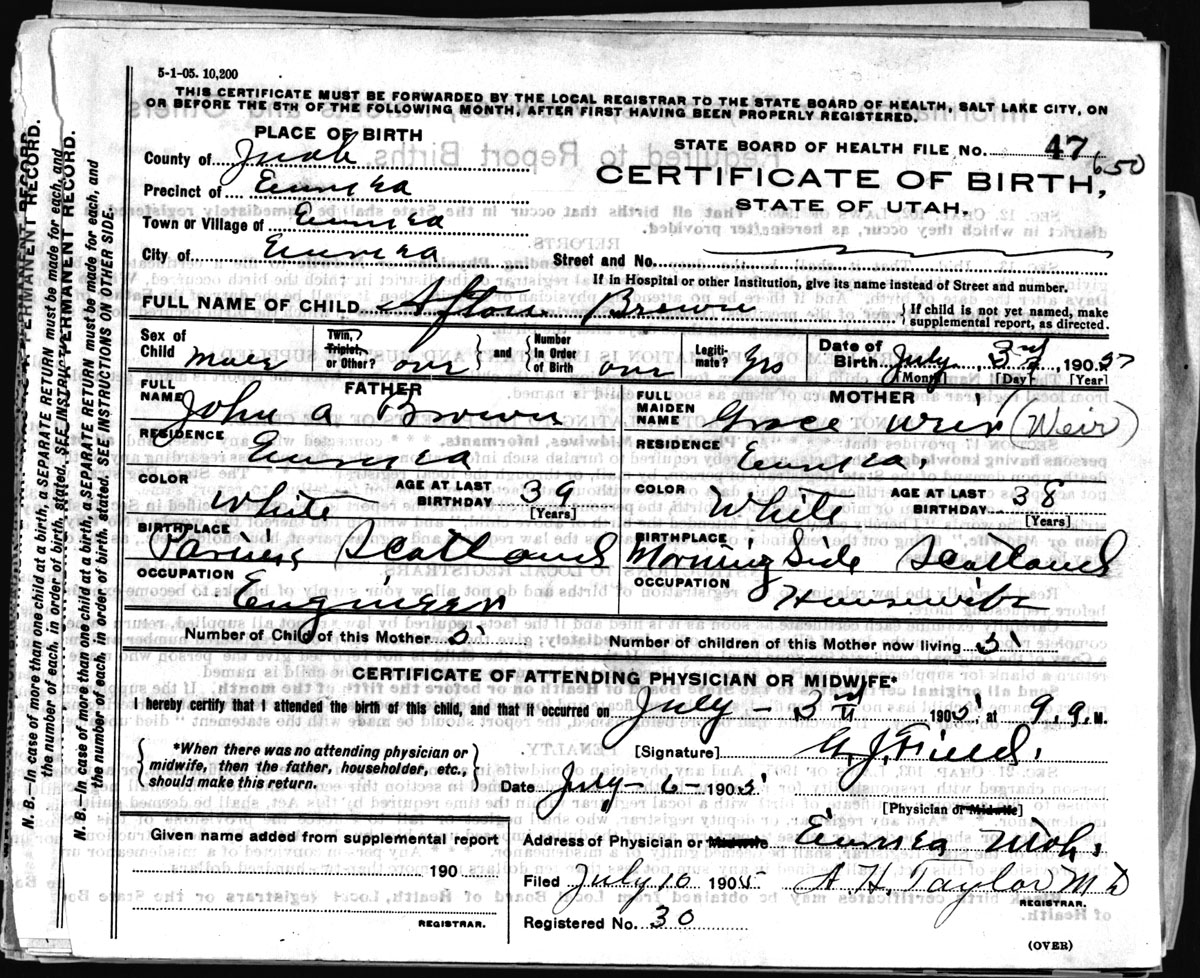 5-1-05. 10,200
THIS CERTIFICATE MUST BE FORWARDED BY THE LOCAL REGISTRAR TO THE STATE BOARD OF HEALTH, SALT LAKE CITY, ON
OR BEFORE THE 5TH OF THE FOLLOWING MONTH, AFTER FIRST HAVING BEEN PROPERLY REGISTERED.
PLACE OF BIRTH
STATE BOARD OF HEALTH FILE NO. 47 650
County of Juab
CERTIFICATE OF BIRTH,
Precinct of Eureka
STATE OF UTAH.
Town or Village of Eureka
City of Eureka Street and No.
If in Hospital or other Institution, give its name instead of Street and number.
FULL NAME OF CHILD Afton Brown { If child is not yet named, make
supplemental report, as directed.
Sex of Child Male Twin, Triplet, or Other? one } and { Number In Order of Birth one Legiti- mate? Yes Date of Birth July 3rd 1905
[Month] [Day] [Year]
FATHER
FULL NAME John A Brown
RESIDENCE Eureka
COLOR White AGE AT LAST BIRTHDAY 39
[Years]
BIRTHPLACE Scotland
OCCUPATION Engineer
Number of Child of this Mother 5
MOTHER
FULL MAIDEN NAME Grace Weir (Weir)
RESIDENCE Eureka.
COLOR White AGE AT LAST BIRTHDAY 38
[Years]
BIRTHPLACE Morning Side Scotland
OCCUPATION Housewife
Number of children of this Mother now living 5
CERTIFICATE OF ATTENDING PHYSICIAN OR MIDWIFE*
I hereby certify that I attended the birth of this child, and that it occurred on July - 3rd 1905 at 9, M.
{ *When there was no attending physician or
midwife, then the father, householder, etc.,
should make this return. }
[Signature] G. J. Field.
Date July - 6 - 1905
[Physician or Midwife]
Given name added from supplemental report
190
REGISTRAR.
Address of Physician or Midwife Eureka Utah.
Filed July 10 1905 A. H. Taylor M D
REGISTRAR.
Registered No. 30
(OVER)
N. B.—In case of more than one child at a birth, a SEPARATE RETURN must be made for each, and
the number of each, in order of birth, stated. SEE INSTRUCTIONS
PERMANENT RECORD.
N. B.—In case of more than one child at a birth, a SEPARATE RETURN must be made for each, and
the number of each, in order of birth, stated. SEE INSTRUCTIONS ON OTHER SIDE.
PERMANENT RECORD.